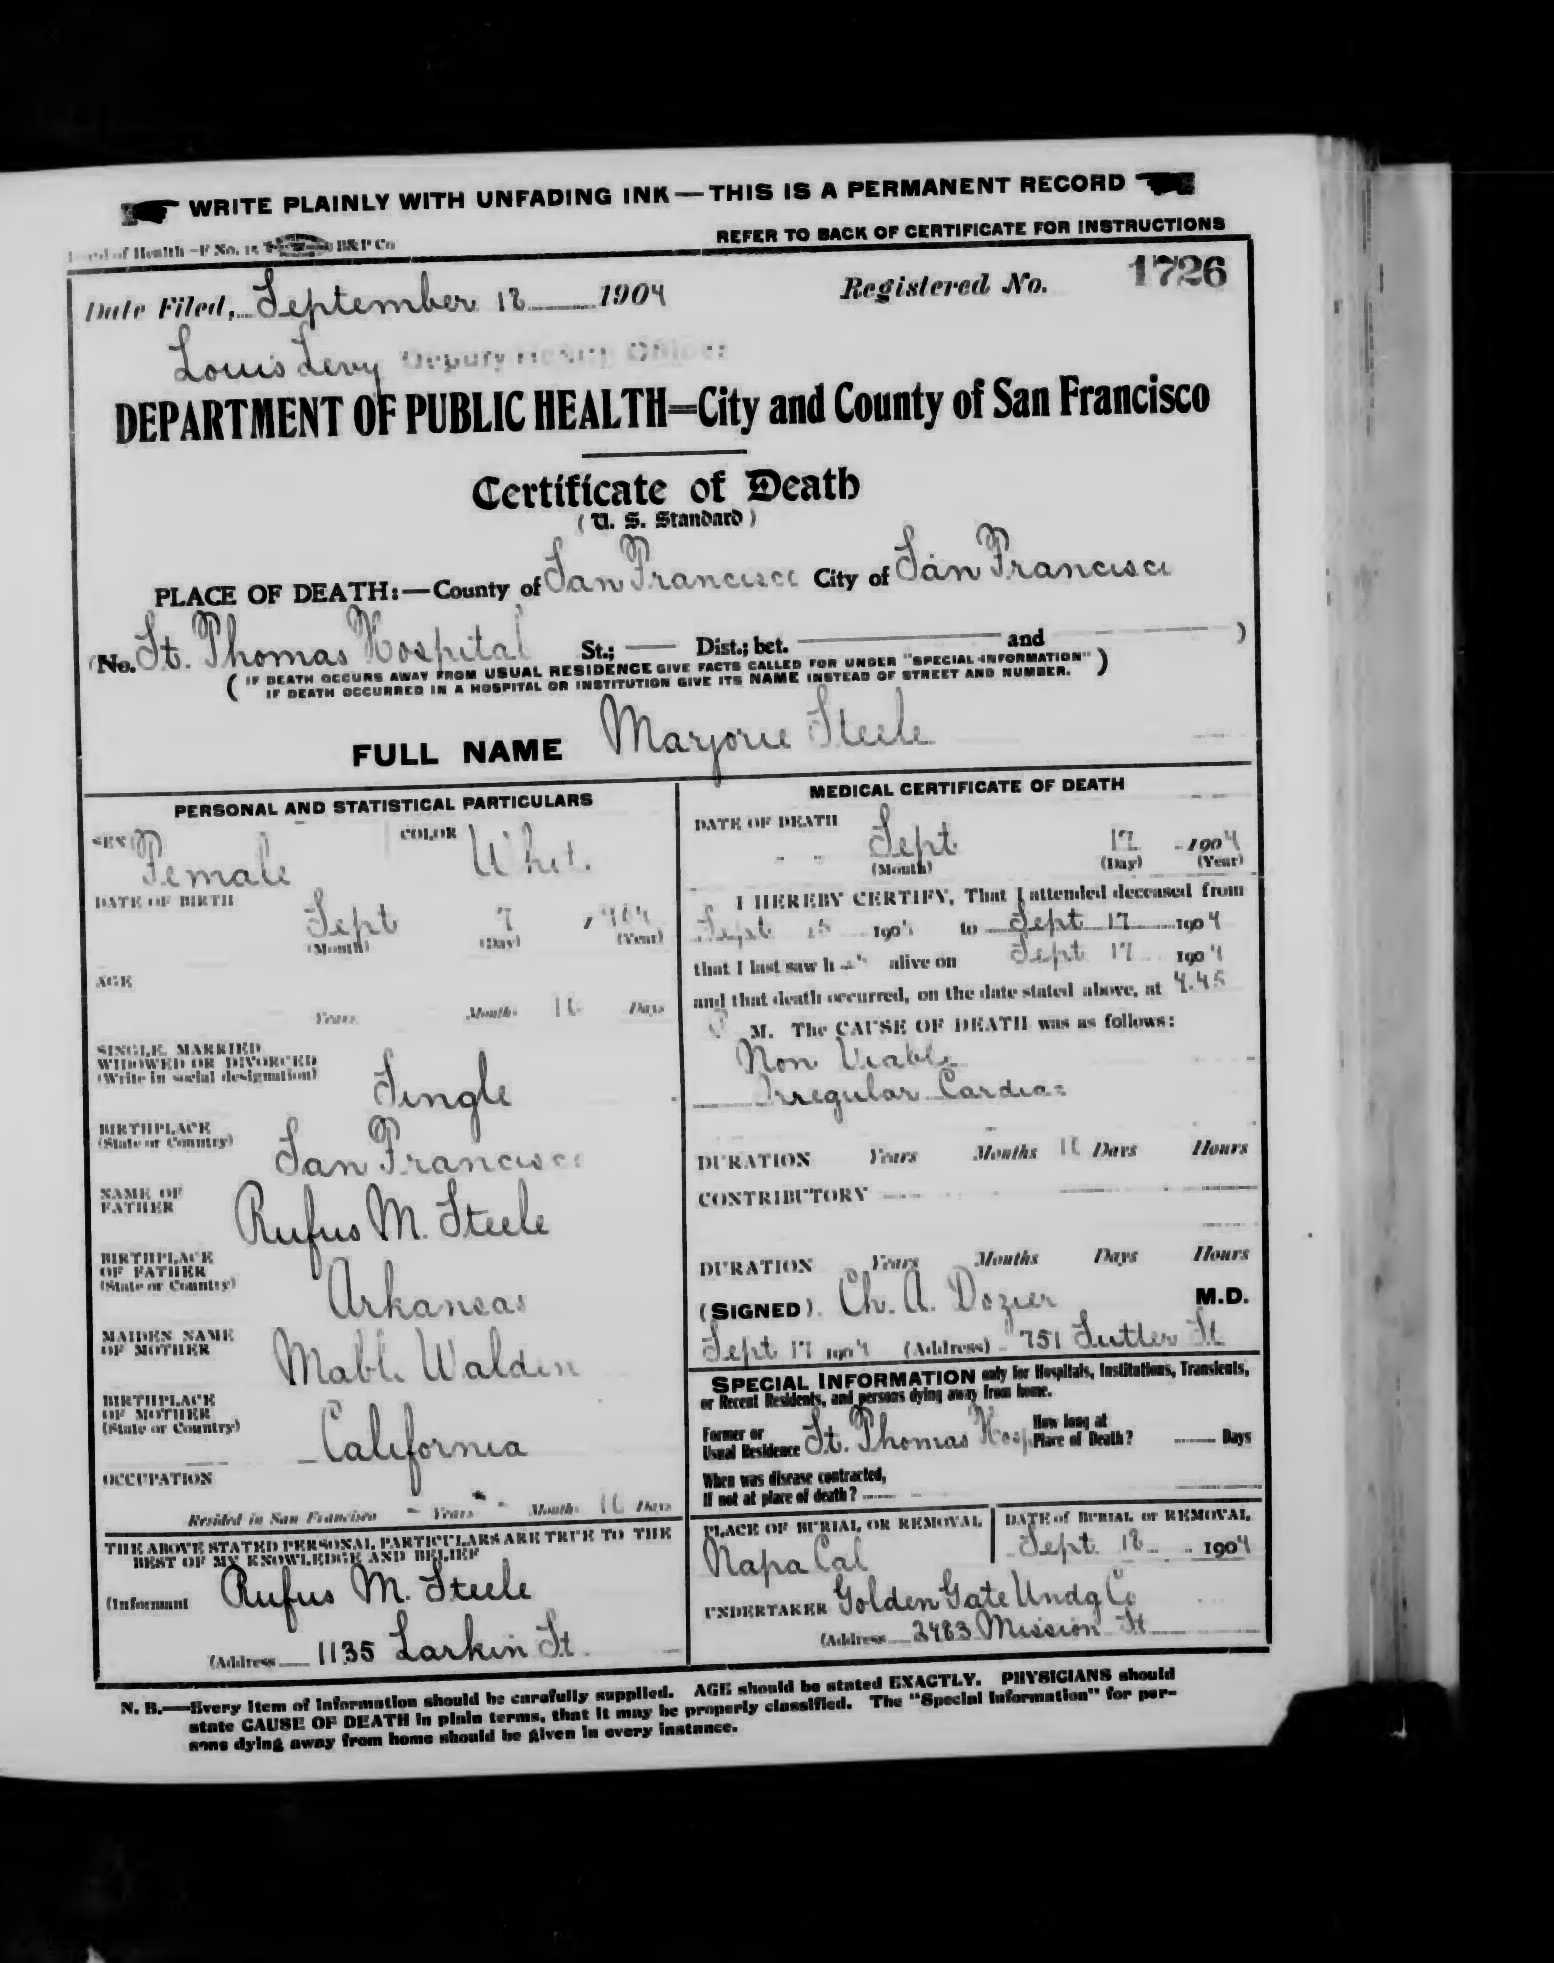 WRITE PLAINLY WITH UNFADING INK — THIS IS A PERMANENT RECORD
of Health—F No. 15 B&P Co
REFER TO BACK OF CERTIFICATE FOR INSTRUCTIONS
Date Filed, September 18 1904 Registered No. 1726
Louis Levy Deputy Health Officer
DEPARTMENT OF PUBLIC HEALTH=City and County of San Francisco
Certificate of Death
( U. S. Standard )
PLACE OF DEATH:—County of San Francisco City of San Francisco
(No. St. Thomas Hospital St.; — Dist.; bet. and )
( IF DEATH OCCURS AWAY FROM USUAL RESIDENCE GIVE FACTS CALLED FOR UNDER "SPECIAL INFORMATION" )
IF DEATH OCCURRED IN A HOSPITAL OR INSTITUTION GIVE ITS NAME INSTEAD OF STREET AND NUMBER.
FULL NAME Marjorie Steele
PERSONAL AND STATISTICAL PARTICULARS
SEX Female COLOR White
DATE OF BIRTH
Sept 7 , 1904
(Month) (Day) (Year)
AGE
Years Months 10 Days
SINGLE, MARRIED
WIDOWED OR DIVORCED
(Write in social designation)
Single
BIRTHPLACE
(State or Country)
San Francisco
NAME OF
FATHER
Rufus M. Steele
BIRTHPLACE
OF FATHER
(State or Country)
Arkansas
MAIDEN NAME
OF MOTHER
Mable Walden
BIRTHPLACE
OF MOTHER
(State or Country)
California
OCCUPATION
Resided in San Francisco - Years - Months 10 Days
THE ABOVE STATED PERSONAL PARTICULARS ARE TRUE TO THE
BEST OF MY KNOWLEDGE AND BELIEF
(Informant Rufus M. Steele
(Address 1135 Larkin St
MEDICAL CERTIFICATE OF DEATH
DATE OF DEATH
Sept 17 1904
(Month) (Day) (Year)
I HEREBY CERTIFY, That I attended deceased from
Sept 15 1904 to Sept 17 1904
that I last saw h alive on Sept 17 1904
and that death occurred, on the date stated above, at 4.45
M. The CAUSE OF DEATH was as follows:
Non Viable
Irregular Cardiac
DURATION Years Months 10 Days Hours
CONTRIBUTORY
DURATION Years Months Days Hours
(SIGNED) Ch. A. Dozier M.D.
Sept 17 1904 (Address) 751 Sutter St
SPECIAL INFORMATION only for Hospitals, Institutions, Transients,
or Recent Residents, and persons dying away from home.
Former or
Usual Residence St. Thomas Hosp How long at
Place of Death? Days
When was disease contracted,
If not at place of death?
PLACE OF BURIAL OR REMOVAL
Napa Cal
DATE of BURIAL or REMOVAL
Sept. 18 1904
UNDERTAKER Golden Gate Undg Co
(Address 2483 Mission St
N. B.—Every item of information should be carefully supplied. AGE should be stated EXACTLY. PHYSICIANS should
state CAUSE OF DEATH in plain terms, that it may be properly classified. The "Special Information" for per-
sons dying away from home should be given in every instance.